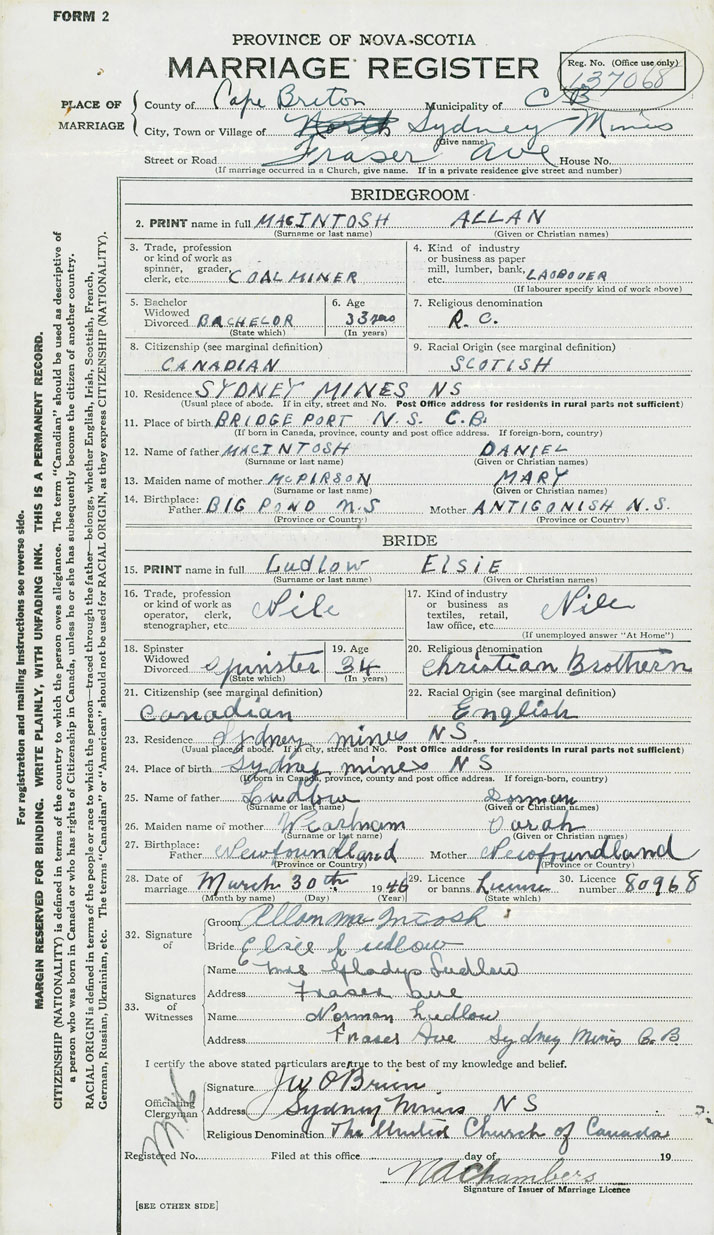 FORM 2
PROVINCE OF NOVA SCOTIA
MARRIAGE REGISTER
Reg. No. (Office use only)
137068
PLACE OF MARRIAGE
County of Cape Breton Municipality of C B
City, Town or Village of North Sydney Mines
(Give name)
Street or Road Fraser Ave House No.
(If marriage occurred in a Church, give name. If in a private residence give street and number)
BRIDEGROOM
2. PRINT name in full MACINTOSH ALLAN
(Surname or last name) (Given or Christian names)
3. Trade, profession or kind of work as spinner, grader, clerk, etc. COAL MINER
4. Kind of industry or business as paper mill, lumber, bank, LAOBOUER
(If labourer specify kind of work above)
5. Bachelor Widowed Divorced BACHELOR
(State which)
6. Age 33 yrs
(In years)
7. Religious denomination
R. C.
8. Citizenship (see marginal definition)
CANADIAN
9. Racial Origin (see marginal definition)
SCOTISH
10. Residence SYDNEY MINES NS
(Usual place of abode. If in city, street and No. Post Office address for residents in rural parts not sufficient)
11. Place of birth BRIDGEPORT N.S. C.B.
(If born in Canada, province, county and post office address. If foreign-born, country)
12. Name of father MACINTOSH DANIEL
(Surname or last name) (Given or Christian names)
13. Maiden name of mother McPIRSON MARY
(Surname or last name) (Given or Christian names)
14. Birthplace: Father BIG POND N.S Mother ANTIGONISH N.S.
(Province or Country) (Province or Country)
BRIDE
15. PRINT name in full Ludlow ELSIE
(Surname or last name) (Given or Christian names)
16. Trade, profession or kind of work as operator, clerk, stenographer, etc. Nile
17. Kind of industry or business as textiles, retail, law office, etc. Nile
(If unemployed answer "At Home")
18. Spinster Widowed Divorced Spinster
(State which)
19. Age 34
(In years)
20. Religious denomination
Christian Brothern
21. Citizenship (see marginal definition)
Canadian
22. Racial Origin (see marginal definition)
English
23. Residence Sydney mines N S.
(Usual place of abode. If in city, street and No. Post Office address for residents in rural parts not sufficient)
24. Place of birth Sydney mines N S
(If born in Canada, province, county and post office address. If foreign-born, country)
25. Name of father Ludlow Dorman
(Surname or last name) (Given or Christian names)
26. Maiden name of mother Sarah
(Surname or last name) (Given or Christian names)
27. Birthplace: Father Newfoundland Mother Newfoundland
(Province or Country) (Province or Country)
28. Date of marriage March 30th 1946
(Month by name) (Day) (Year)
29. Licence or banns License
(State which)
30. Licence number 80968
32. Signature of
Groom Allan Mac Intosh
Bride Elsie Ludlow
33. Signatures of Witnesses
Name Mrs Gladys Ludlow
Address Fraser ave
Name Norman Ludlow
Address Fraser Ave Sydney Mines C.B.
I certify the above stated particulars are true to the best of my knowledge and belief.
Officiating Clergyman
Signature O'Brien
Address Sydney Mines N S
Religious Denomination The United Church of Canada
Registered No. Filed at this office day of 19
Chambers
Signature of Issuer of Marriage Licence
[SEE OTHER SIDE]
For registration and mailing instructions see reverse side.
MARGIN RESERVED FOR BINDING. WRITE PLAINLY, WITH UNFADING INK. THIS IS A PERMANENT RECORD.
CITIZENSHIP (NATIONALITY) is defined in terms of the country to which the person owes allegiance. The term "Canadian" should be used as descriptive of
a person who was born in Canada or who has rights of Citizenship in Canada, unless he or she has subsequently become the citizen of another country.
RACIAL ORIGIN is defined in terms of the people or race to which the person—traced through the father—belongs, whether English, Irish, Scottish, French,
German, Russian, Ukrainian, etc. The terms "Canadian" or "American" should not be used for RACIAL ORIGIN, as they express CITIZENSHIP (NATIONALITY).